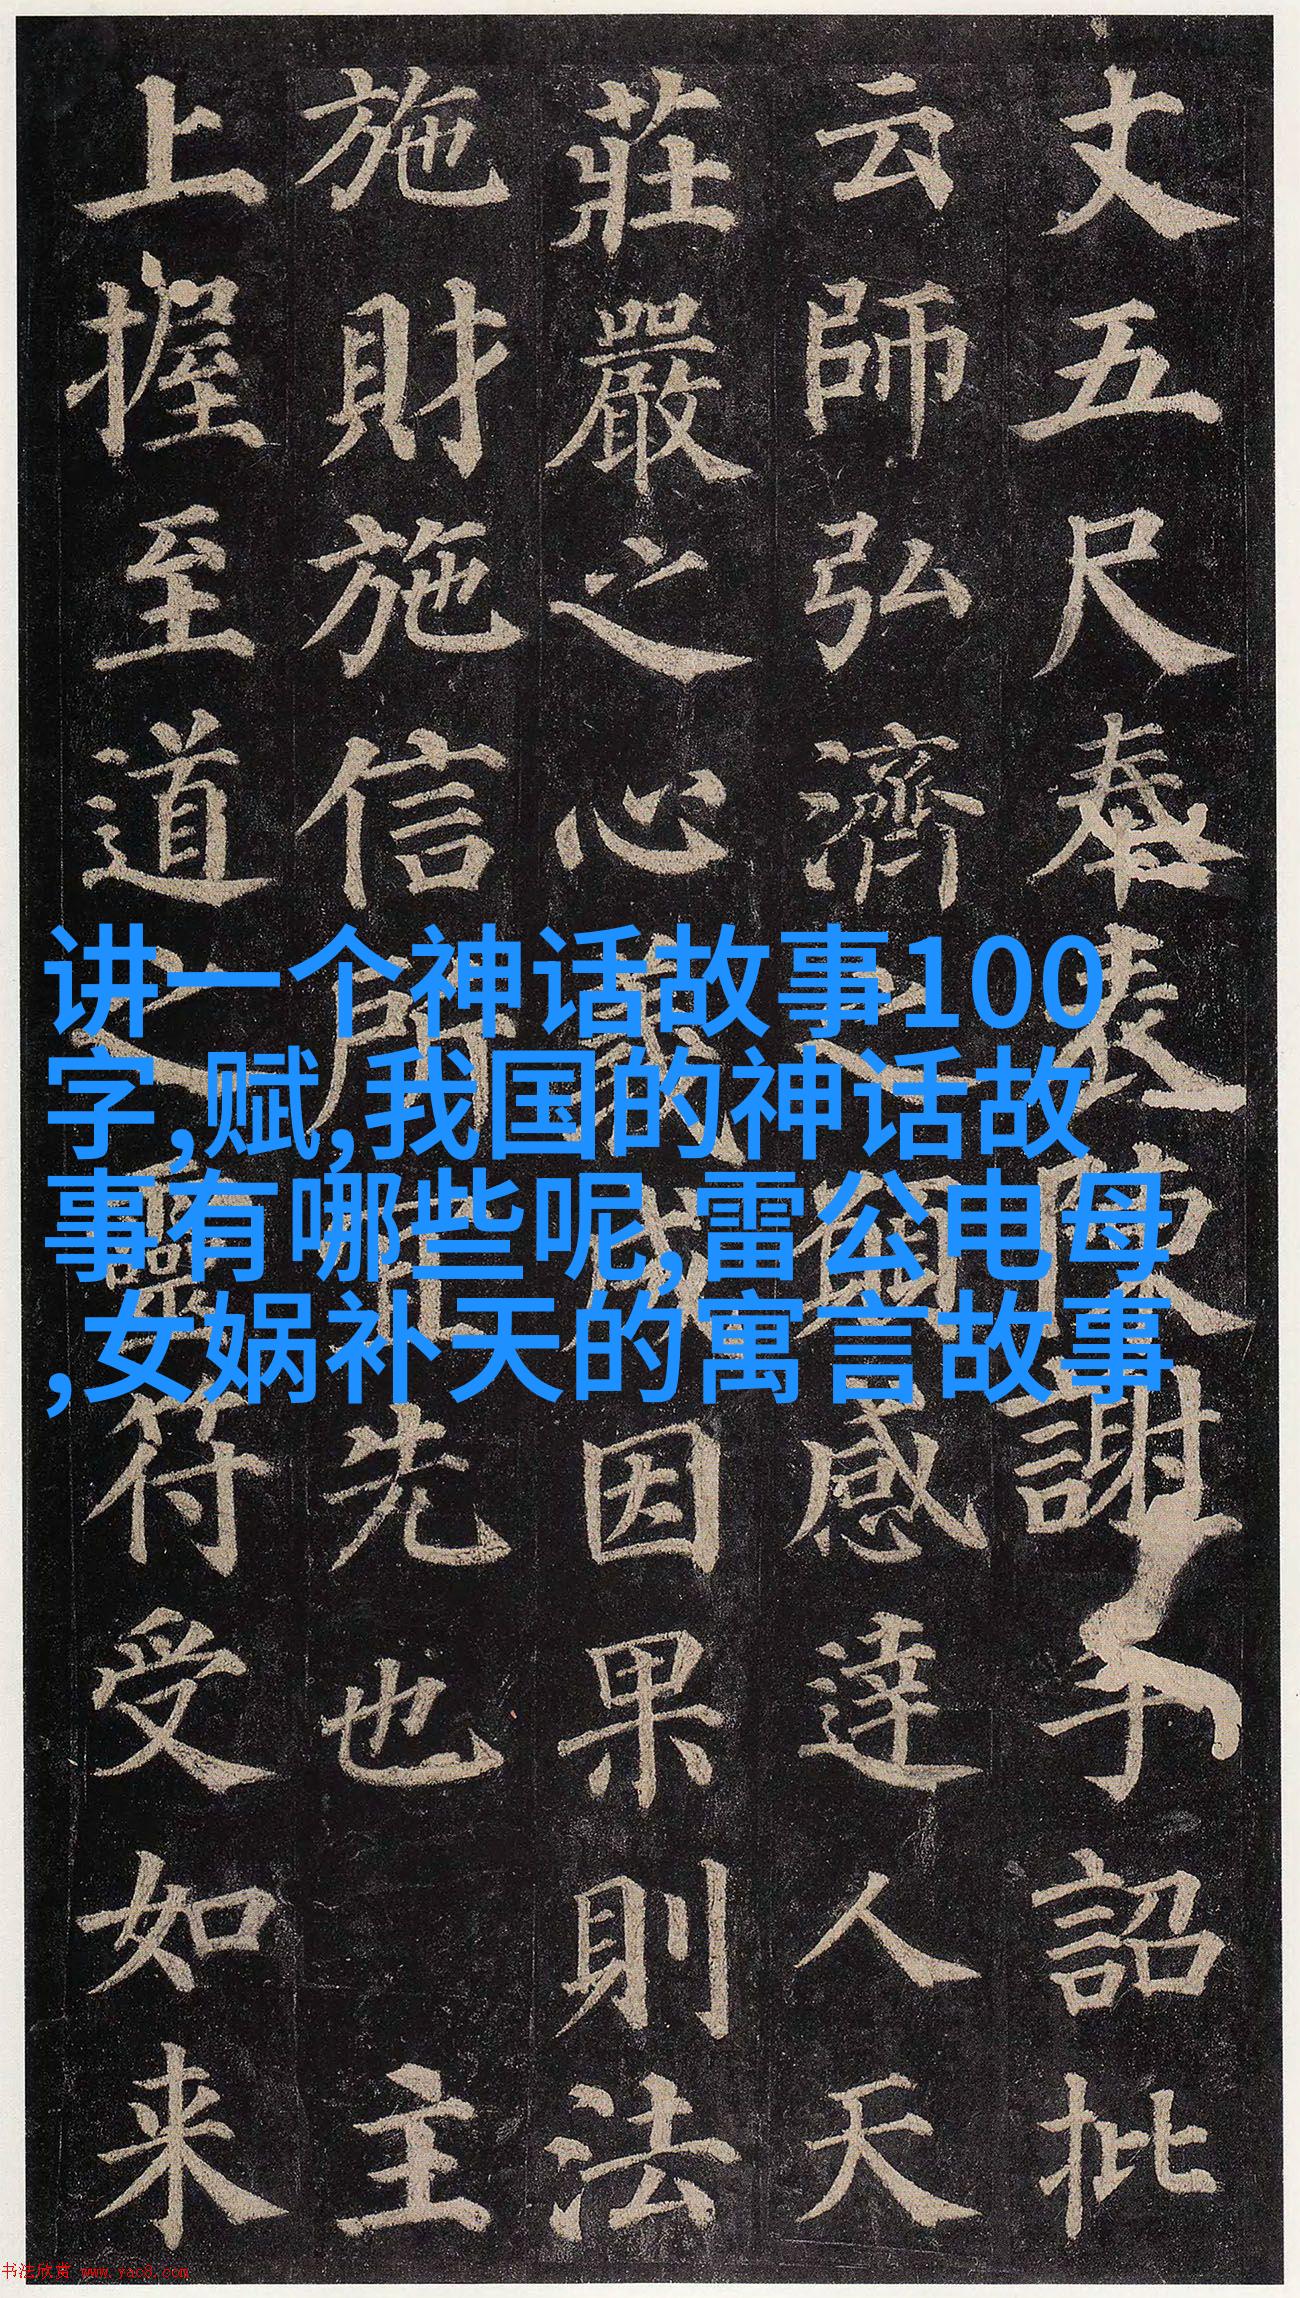 丈五尺奉表陳謝手詔批
云師弘濟之願感達人天
莊嚴之心義成因果則法
施財施信所先也主
上握至道之靈符受如来
讲一个神话故事100
字,赋,我国的神话故
事有哪些呢,雷公电母
,女娲补天的寓言故事
书法欣赏 www.yac8.com